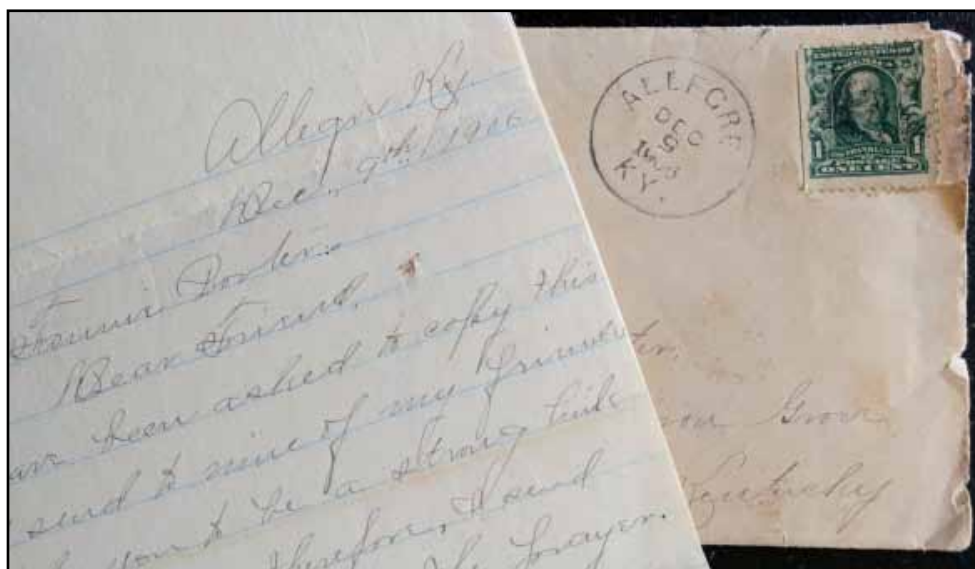 Allegre Ky
Dec. 9th, 1906
Fannie Porter.
Dear Friend,
been asked to copy this
send to nine of my friends
you to be a strong link
therefore, I send
the prayer.
ALLEGRE
DEC
KY.
UNITED STATES OF
FRANKLIN
1 1
ONE CENT
Grove
Kentucky